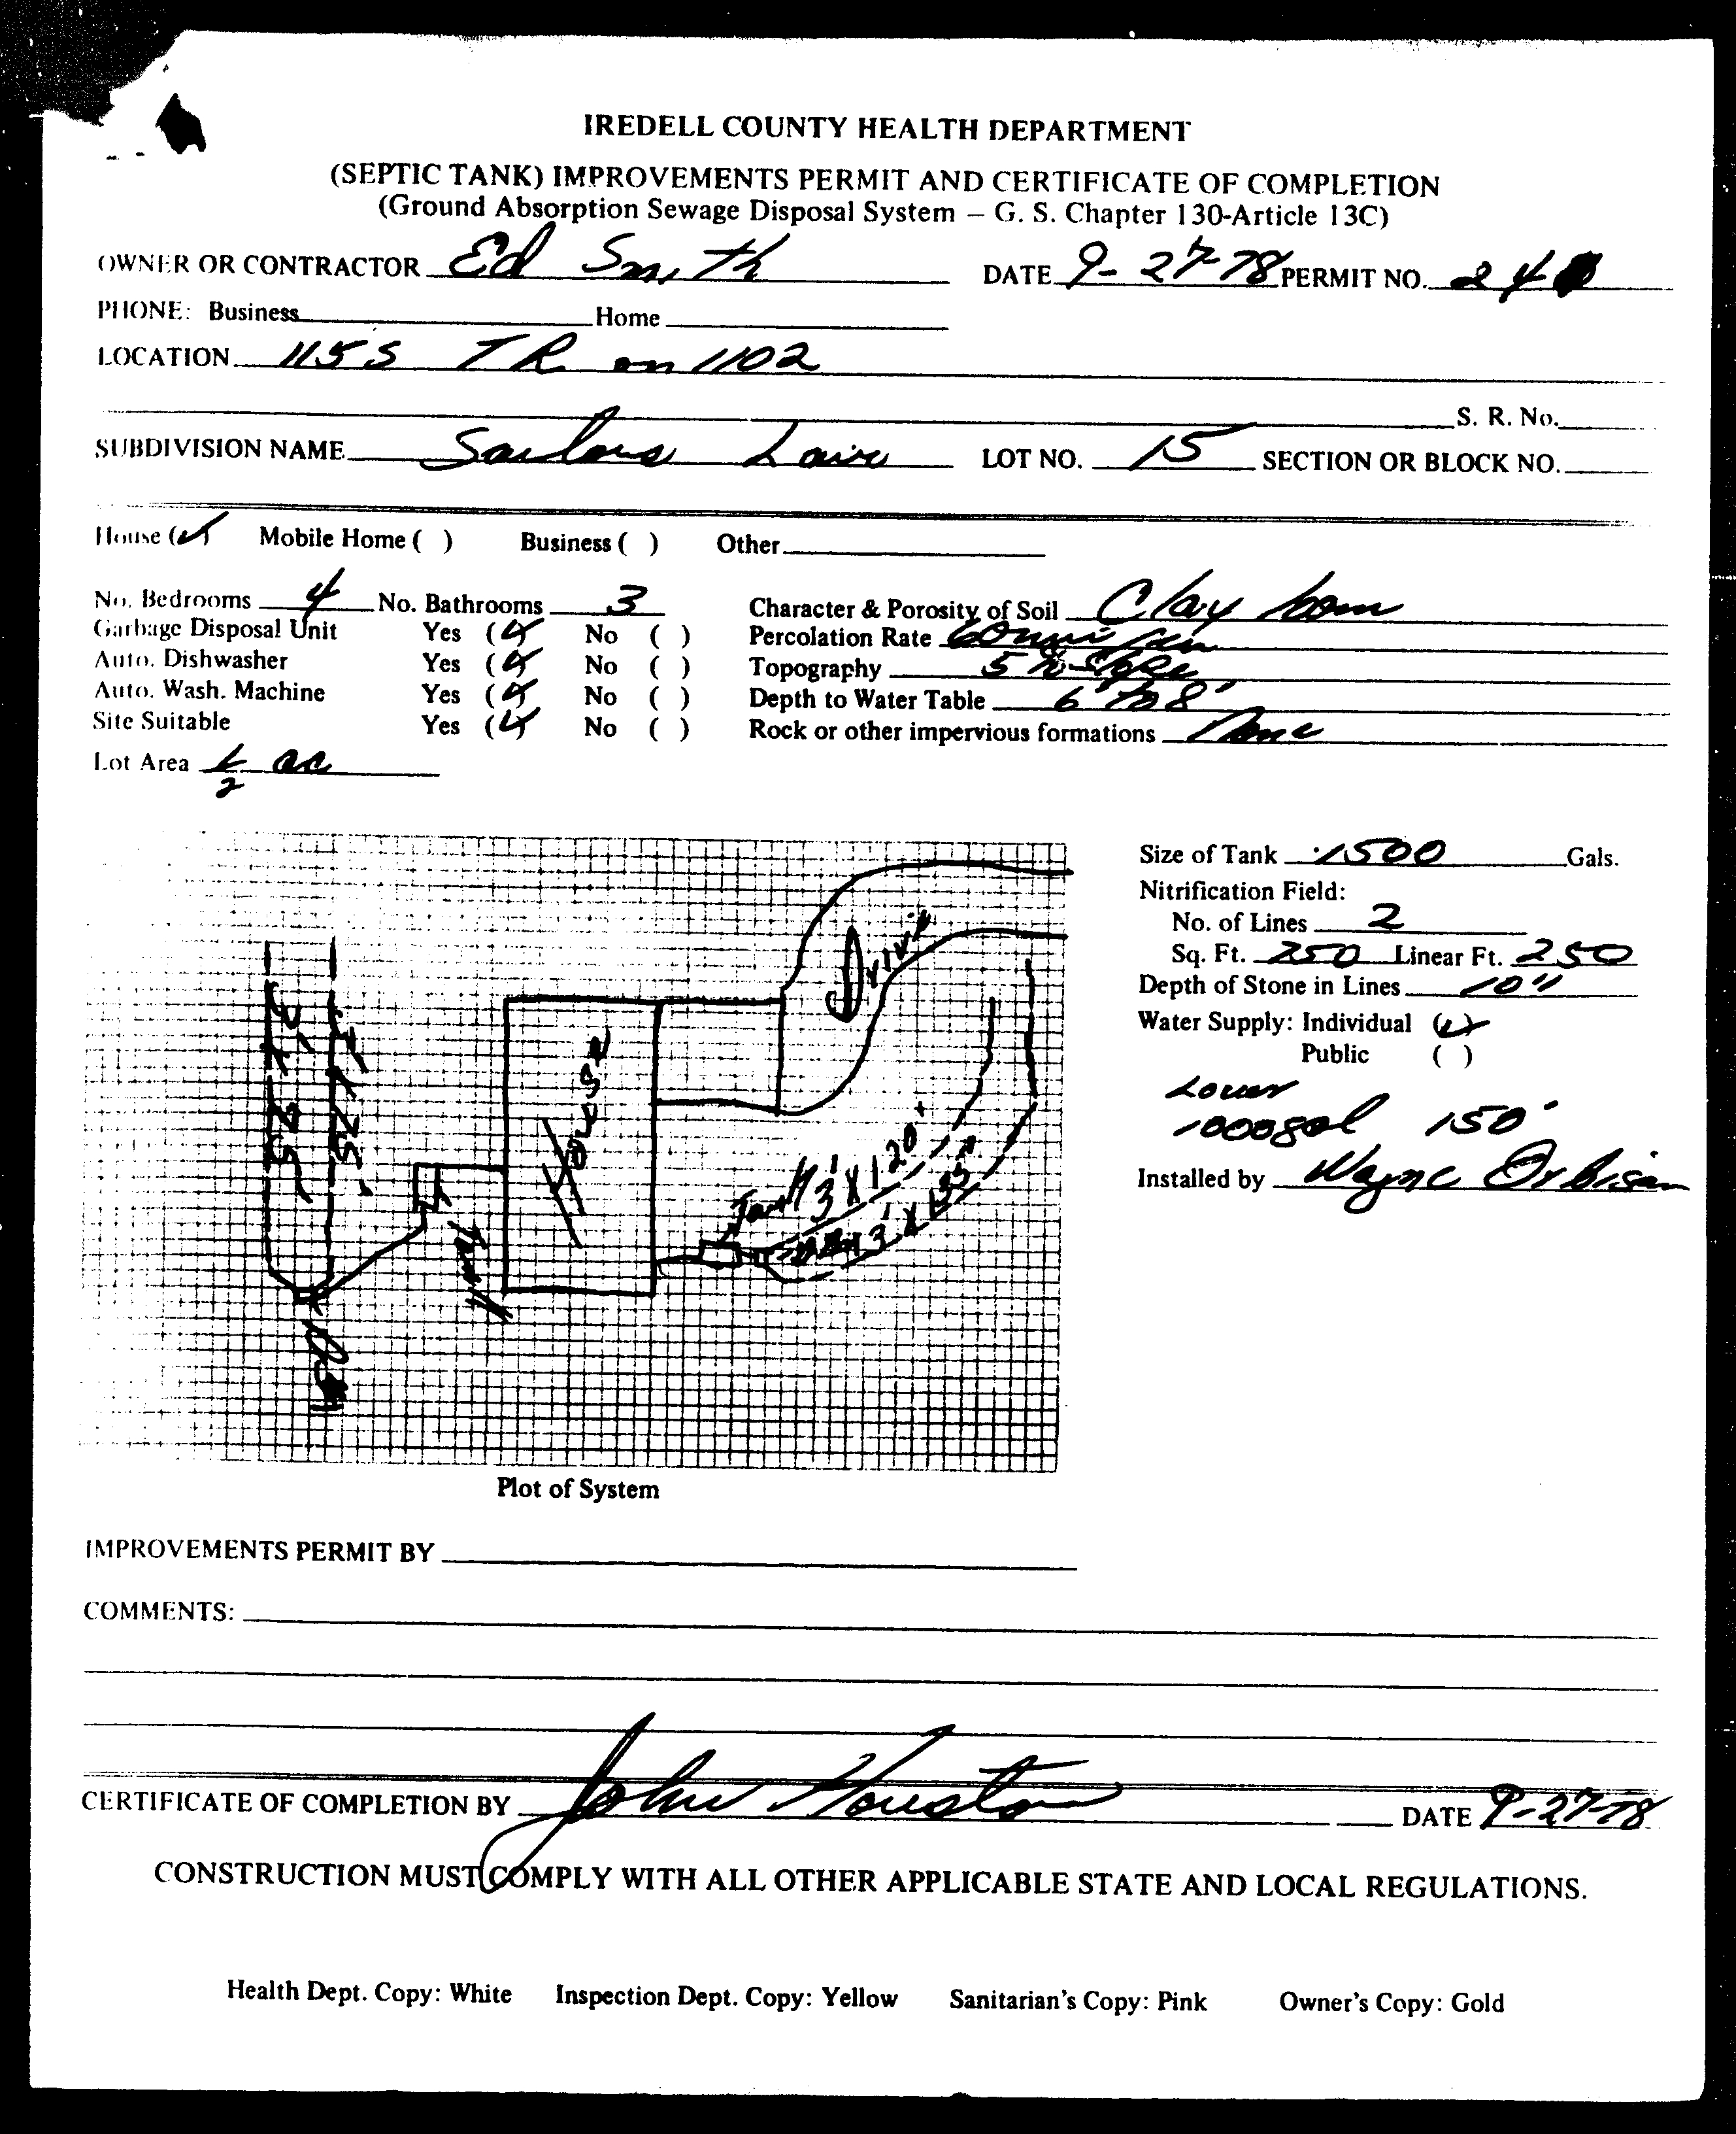 IREDELL COUNTY HEALTH DEPARTMENT
(SEPTIC TANK) IMPROVEMENTS PERMIT AND CERTIFICATE OF COMPLETION
(Ground Absorption Sewage Disposal System – G. S. Chapter 130-Article 13C)
OWNER OR CONTRACTOR Ed Smith DATE 9-27-78 PERMIT NO. 24
PHONE: Business Home
LOCATION 1155 TR on 1102
S. R. No.
SUBDIVISION NAME LOT NO. 15 SECTION OR BLOCK NO.
House (✓) Mobile Home ( ) Business ( ) Other
No. Bedrooms 4 No. Bathrooms 3 Character & Porosity of Soil Clay loam
Garbage Disposal Unit Yes (✓) No ( ) Percolation Rate
Auto. Dishwasher Yes (✓) No ( ) Topography 5 % Slope
Auto. Wash. Machine Yes (✓) No ( ) Depth to Water Table 6' to 8'
Site Suitable Yes (✓) No ( ) Rock or other impervious formations None
Lot Area 1/2 ac
Size of Tank 1500 Gals.
Nitrification Field:
No. of Lines 2
Sq. Ft. 750 Linear Ft. 250
Depth of Stone in Lines 10"
Water Supply: Individual (✓)
Public ( )
Lower
1000gal 150'
Installed by Wayne Orbison
Drive
House
3' X 125'
3' X 125'
Tank
Tank
3' X 120'
3' X 135'
Plot of System
IMPROVEMENTS PERMIT BY
COMMENTS:
CERTIFICATE OF COMPLETION BY John Houston DATE 9-27-78
CONSTRUCTION MUST COMPLY WITH ALL OTHER APPLICABLE STATE AND LOCAL REGULATIONS.
Health Dept. Copy: White Inspection Dept. Copy: Yellow Sanitarian's Copy: Pink Owner's Copy: Gold